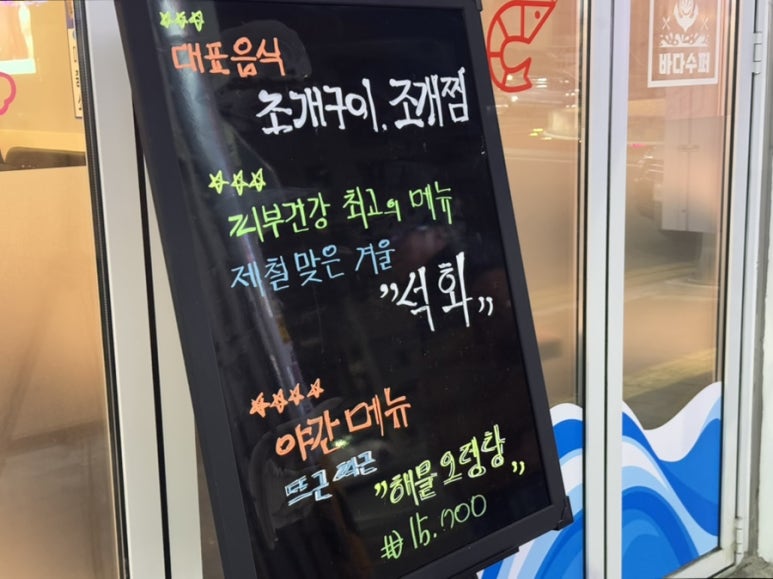 대표음식
조개구이. 조개찜
피부건강 최고의 메뉴
제철 맞은 겨울
"석화"
야간 메뉴
뜨근 뜨근
"해물오뎅탕"
₩15.000
바다수퍼